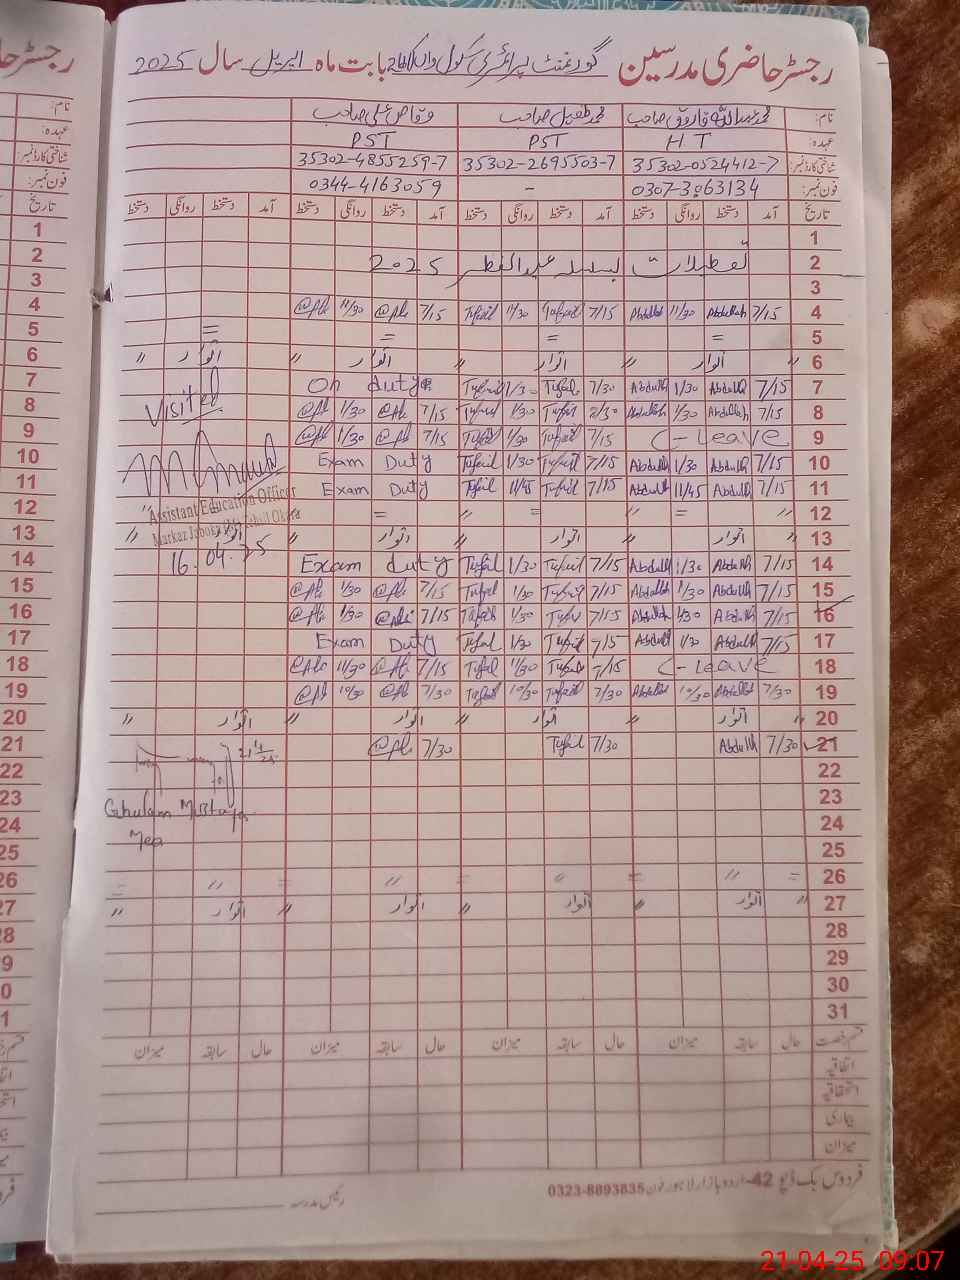 رجسٹر حاضری مدرسین گورنمنٹ پرائمری سکول بابت ماہ اپریل سال 2025
نام: محمد عبداللہ فاروق صاحب محمد طفیل صاحب وقاص علی صاحب
عہدہ: H T PST PST
شناختی کارڈ نمبر: 35302-0524412-7 35302-2695503-7 35302-4855259-7
فون نمبر: 0307-3063134 - 0344-4163059
تاریخ آمد دستخط روانگی دستخط آمد دستخط روانگی دستخط آمد دستخط روانگی دستخط آمد دستخط روانگی دستخط
1
2 تعطیلات بسلسلہ عید الفطر 2025
3
4 7/15 Abdullah 11/30 Abdullah 7/15 Tufail 11/30 Tufail 7/15 @Ali 11/30 @Ali
5 = = = =
6 " اتوار " اتوار " اتوار " اتوار "
7 7/15 Abdullah 1/30 Abdullah 7/30 Tufail 1/30 Tufail On duty
8 7/15 Abdullah 1/30 Abdullah Tufail 1/30 Tufail 7/15 @Ali 1/30 @Ali Visited
9 C-Leave 7/15 Tufail 1/30 Tufail 7/15 @Ali 1/30 @Ali
10 7/15 Abdullah 1/30 Abdullah 7/15 Tufail 1/30 Tufail Exam Duty
11 7/15 Abdullah 11/45 Abdullah 7/15 Tufail 11/45 Tufail Exam Duty
Assistant Education Officer
12 " = " = " = "
13 اتوار " اتوار " اتوار " اتوار "
Markaz Jaboka (M) Tehsil Okara
14 7/15 Abdullah 1/30 Abdullah 7/15 Tufail 1/30 Tufail Exam duty 16.04.25
15 7/15 Abdullah 1/30 Abdullah 7/15 Tufail 1/30 Tufail 7/15 @Ali 1/30 @Ali
16 7/15 Abdullah 1/30 Abdullah 7/15 Tufail 1/30 Tufail 7/15 @Ali 1/30 @Ali
17 7/15 Abdullah 1/30 Abdullah 7/15 Tufail 1/30 Tufail Exam Duty
18 C-Leave 7/15 Tufail 11/30 Tufail 7/15 @Ali 11/30 @Ali
19 7/30 Abdullah 10/30 Abdullah 7/30 Tufail 10/30 Tufail 7/30 @Ali 10/30 @Ali
20 " اتوار " اتوار " اتوار " اتوار "
21 7/30 Abdullah 7/30 Tufail 7/30 @Ali
22
23
Ghulam Mustafa
24
Mea
25
26 = " = " = " = " =
27 " اتوار " اتوار " اتوار " اتوار "
28
29
30
31
قسم رخصت حال سابقہ میزان حال سابقہ میزان حال سابقہ میزان حال سابقہ میزان
اتفاقیہ
استحقاقیہ
بیماری
میزان
فردوس بک ڈپو 42-اردو بازار لاہور فون 0323-8893835
رئیس مدرسہ
21-04-25 09:07